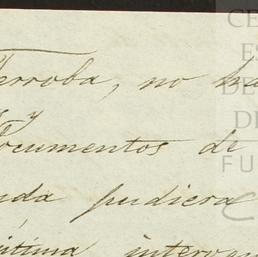 Terroba, no ha
y
Documentos de
nda pudiera
íntima interven
CE
ES
DE
DI
FU